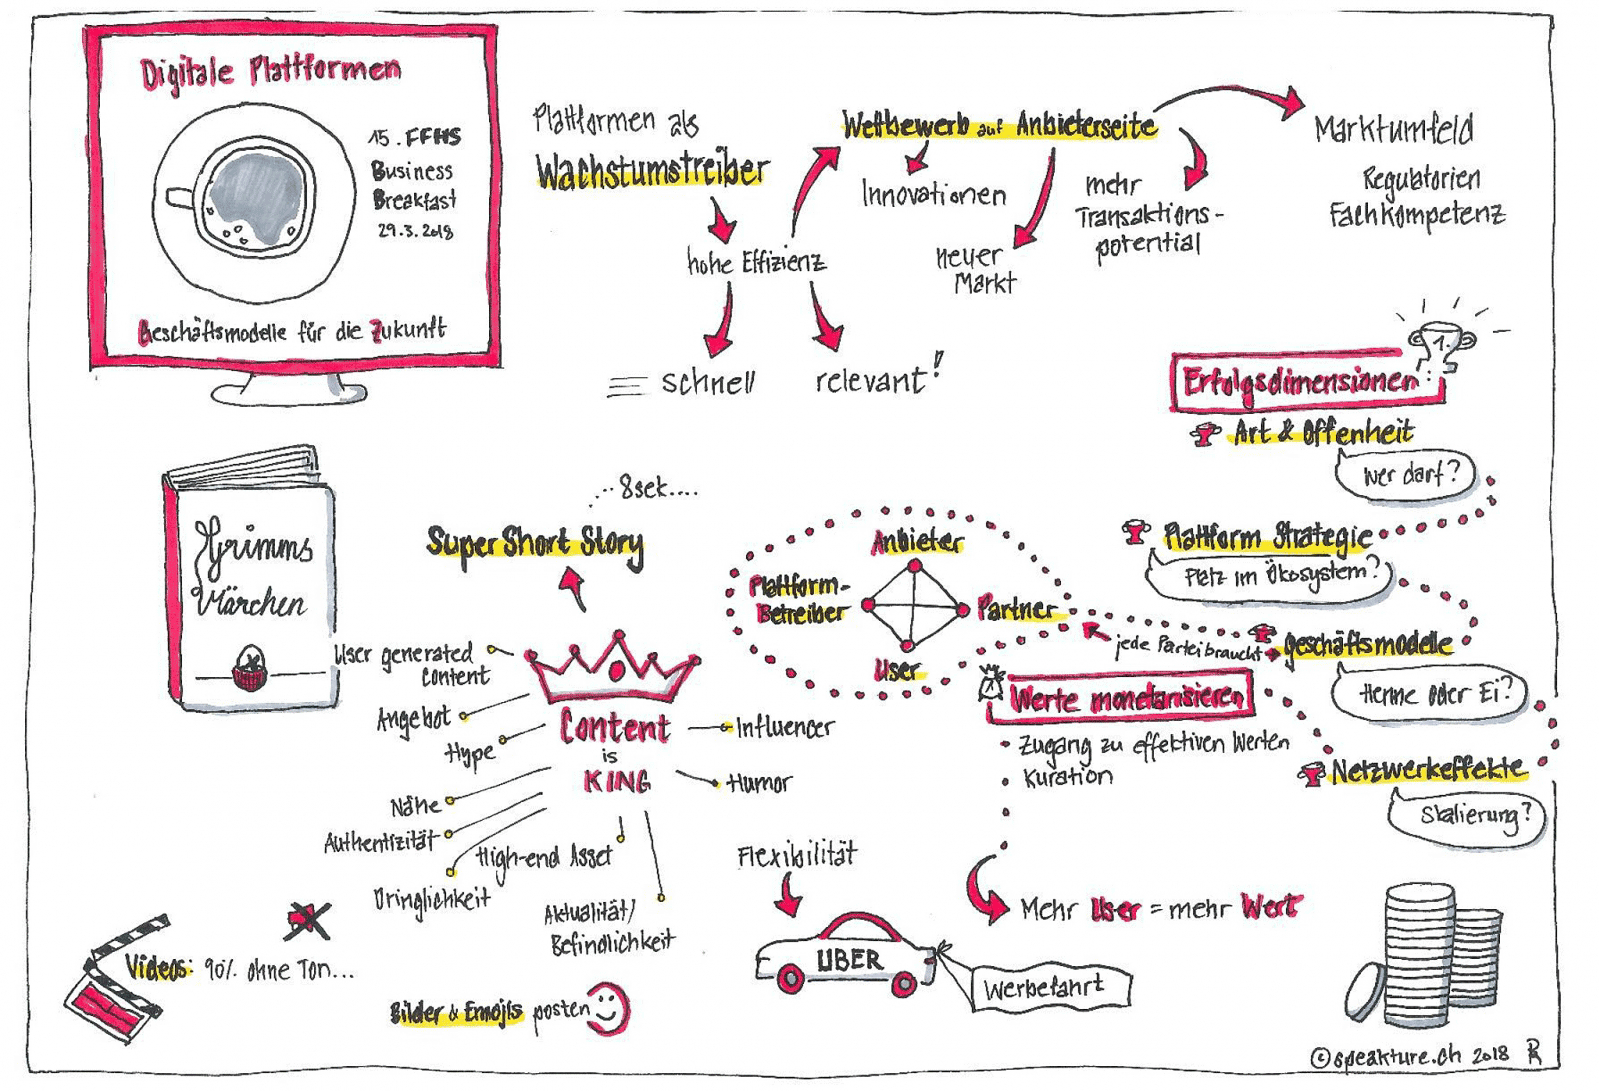 Digitale Plattformen
15. FFHS
Business
Breakfast
29.3.2018
Geschäftsmodelle für die Zukunft
Plattformen als
Wachstumstreiber
hohe Effizienz
schnell
relevant!
Wettbewerb auf Anbieterseite
Innovationen
neuer
Markt
mehr
Transaktions-
potential
Marktumfeld
Regulatorien
Fachkompetenz
Erfolgsdimensionen
1.
Art & Offenheit
Wer darf?
Plattform Strategie
Platz im Ökosystem?
Geschäftsmodelle
Henne oder Ei?
Netzwerkeffekte
Skalierung?
Grimms
Märchen
..8sek....
Super Short Story
User generated
Content
Angebot
Hype
Nähe
Authentizität
Dringlichkeit
High-end Asset
Aktualität/
Befindlichkeit
Content
is
KING
Influencer
Humor
Anbieter
Plattform-
Betreiber
Partner
User
jede Partei braucht
Werte monetarisieren
• Zugang zu effektiven Werten
• Kuration
Mehr User = mehr Wert
Flexibilität
UBER
Werbefahrt
Videos: 90% ohne Ton...
Bilder & Emojis posten
©speakture.ch 2018